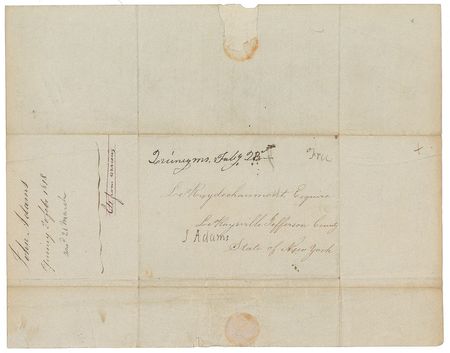 Quincy Ms. Feby 28
Free
Le Ray de chaumont Esquire
Le Raysville Jefferson County
J Adams
State of New York
John Adams
Quincy Feb 1818
21 March